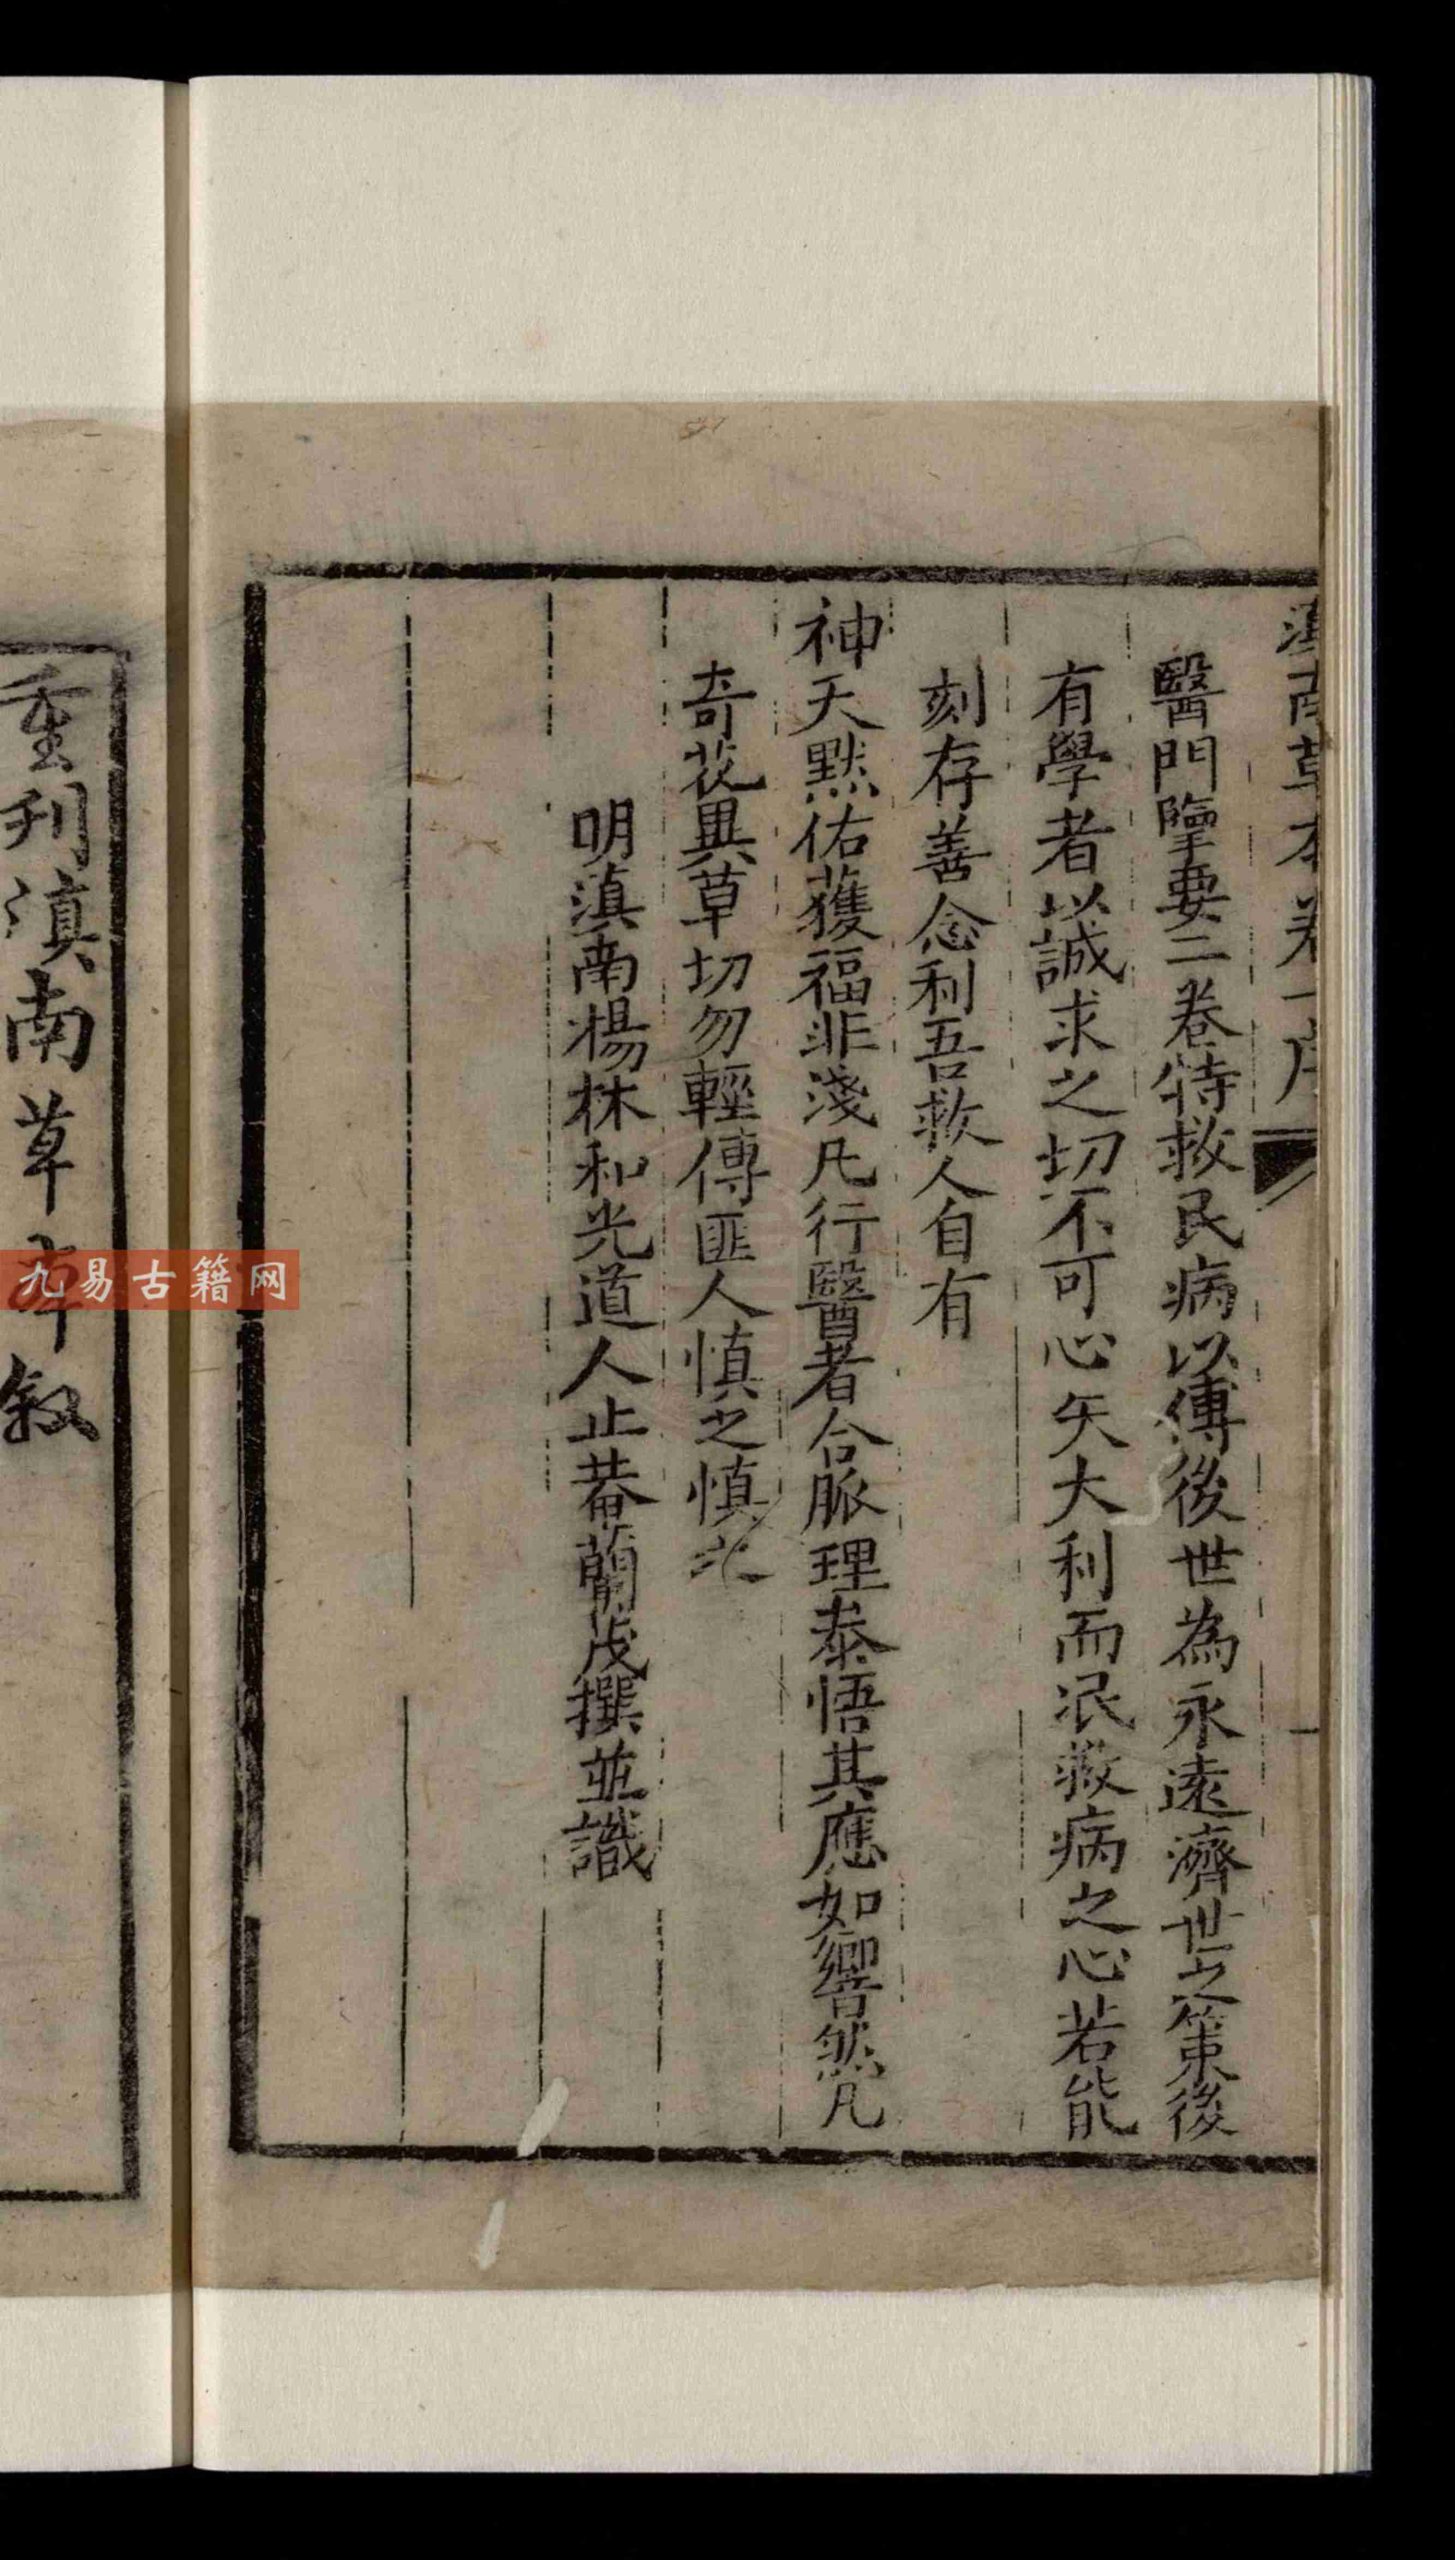 滇南草本卷一序
醫門擥要二卷特救民病以傳後世為永遠濟世之策後
有學者以誠求之切不可心矢大利而泯救病之心若能
刻存善念利吾救人自有
神天默佑獲福非淺凡行醫者合脈理泰悟其應如響然凡
奇花異草切勿輕傳匪人慎之慎之
明滇南楊林和光道人止菴蘭茂撰並識
重刊滇南草本叙
九易古籍网